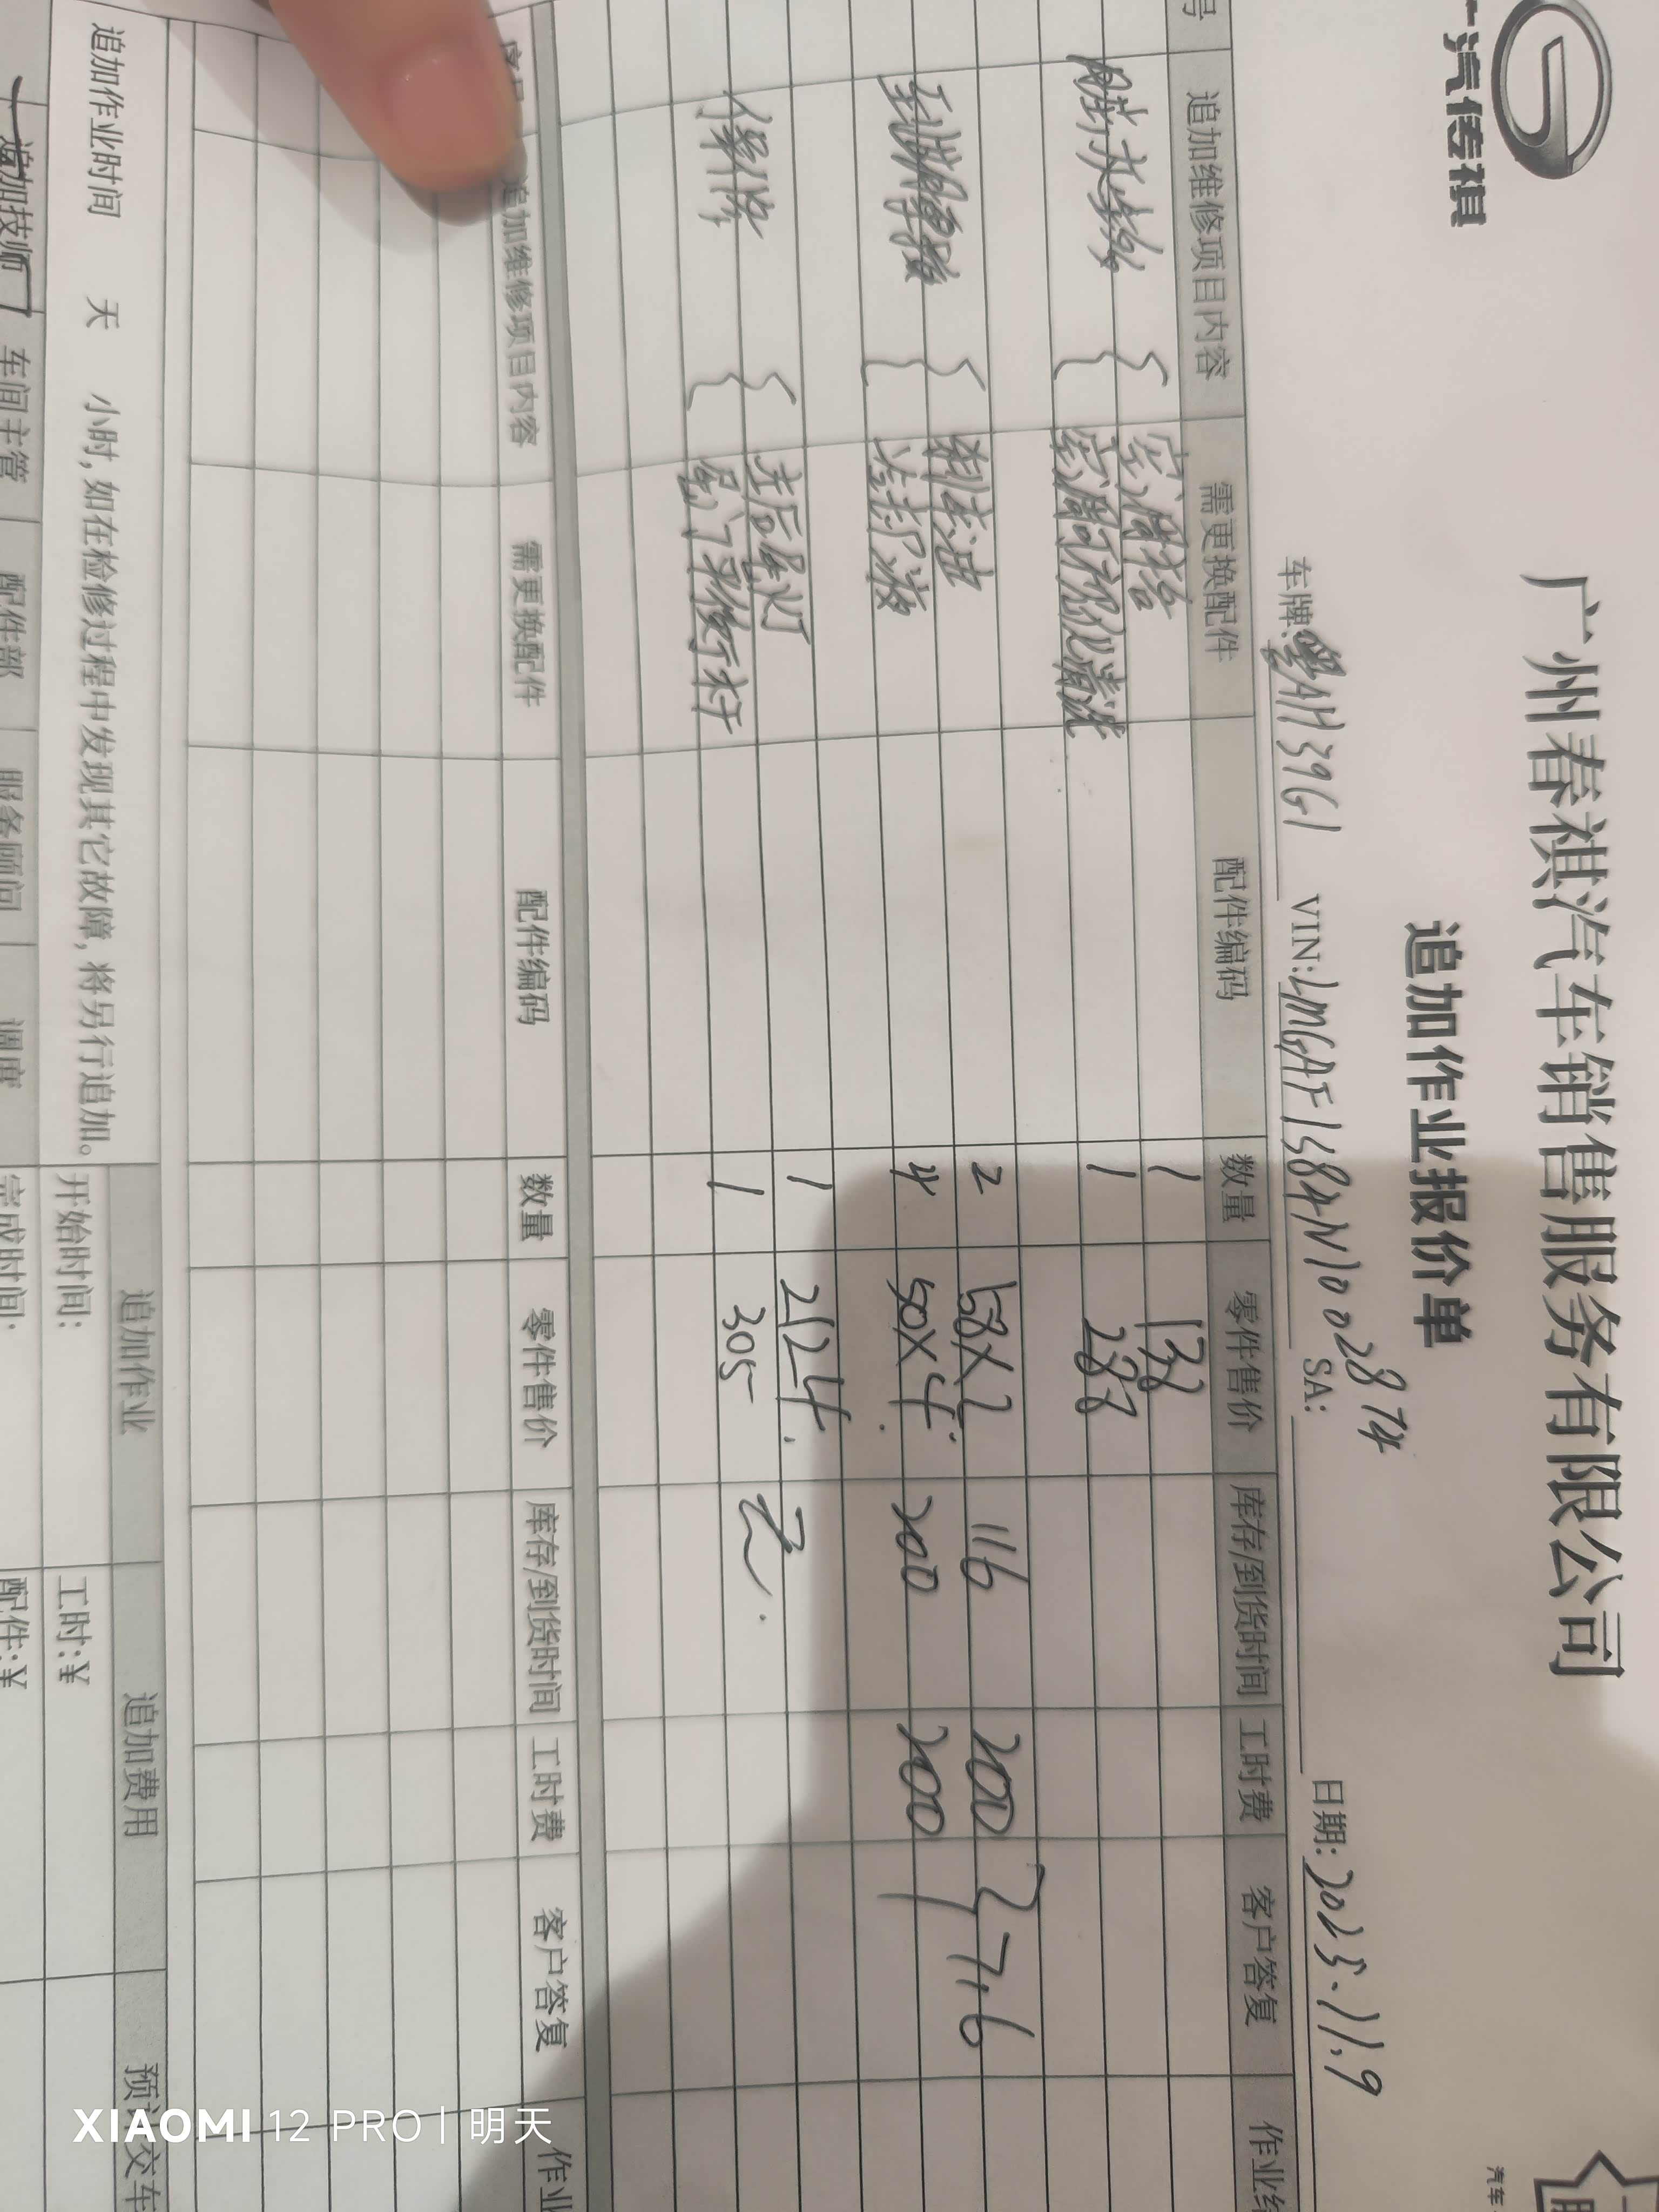 广汽传祺
广州春祺汽车销售服务有限公司
追加作业报价单
车牌:粤AH39G1 VIN:LMGAF1S84N1002874 SA: 日期:2025.11.9
号 追加维修项目内容 需更换配件 配件编码 数量 零件售价 库存/到货时间 工时费 客户答复 作业结
空调格 1 138
空调 清洗 1 288
到期更换 { 刹车油 2 58X2 116 200 } 716
冷却液 4 50X4 200 200
保险 { 左后尾灯 1 2124 无
尾门装饰杆 1 305
序号 追加维修项目内容 需更换配件 配件编码 数量 零件售价 库存/到货时间 工时费 客户答复 作业
追加作业时间 天 小时,如在检修过程中发现其它故障,将另行追加。
追加作业 追加费用 预计交车
开始时间: 工时:¥
完成时间: 配件:¥
追加技师 车间主管 配件部 服务顾问 调度
XIAOMI 12 PRO | 明天